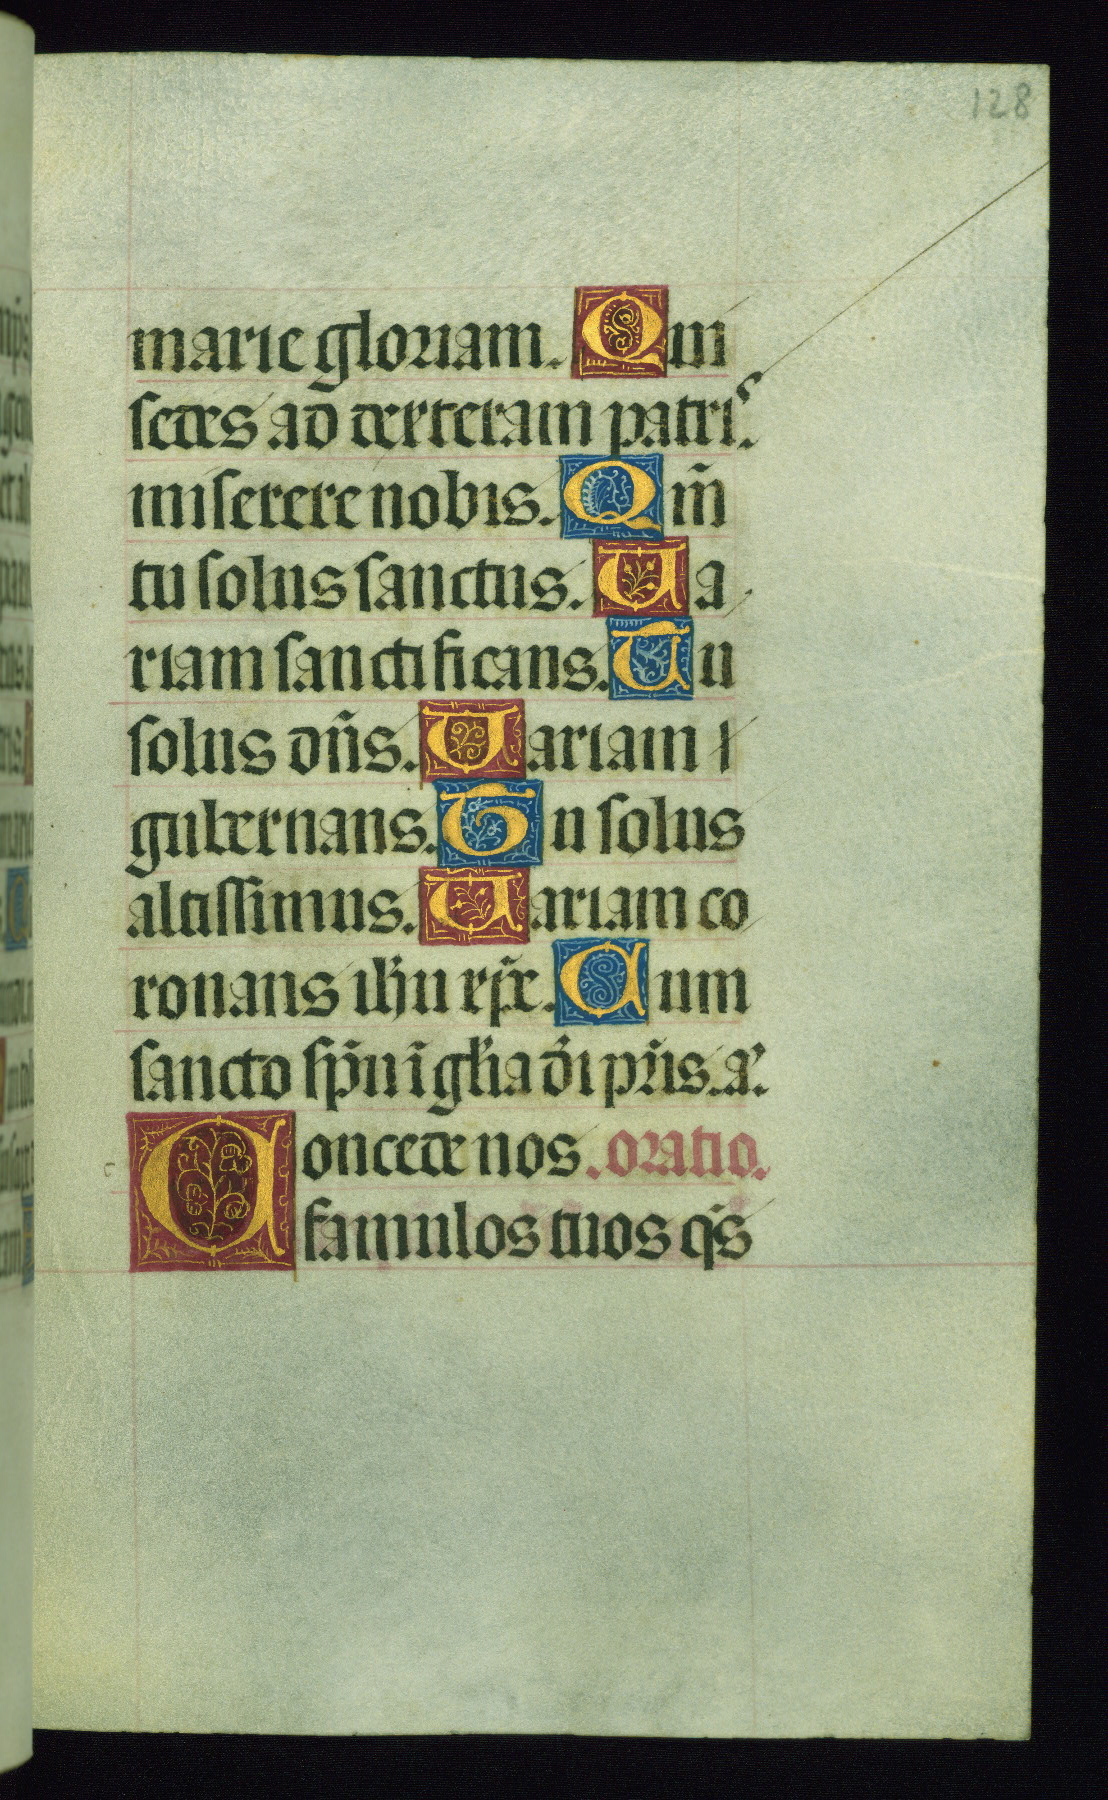 128
marie gloriam. Qui
sedes ad dexteram patris.
miserere nobis. Qm̅
tu solus sanctus. Ma
riam sanctificans. Tu
solus dn̅s. Mariam
gubernans. Tu solus
altissimus. Mariam co
ronans ihu xp̅e. Cum
sancto sp̅u i̅ gl'ia d̅i pr̅is. a'.
Concede nos. oratio.
famulos tuos qs̅